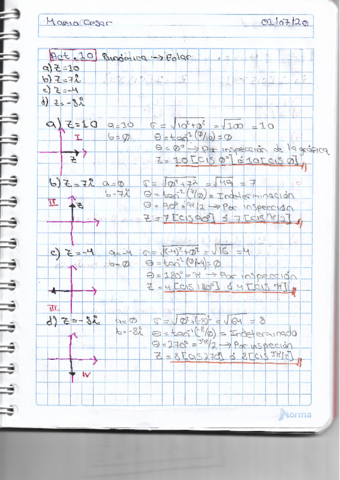 Mario Cesar 02/07/20
Act. 10 Binómica → Polar
a) z=10
b) z=7i
c) z=-4
d) z=-8i
a) z=10 a=10 r=√10²+0² =√100 =10
I b=0 θ=tan⁻¹(0/10)=0
θ=0° → Por inspección de la gráfica
z z=10[cis 0°] ó 10[cis 0]
b) z=7i a=0 r=√0²+7² =√49 = 7
II b=7i θ=tan⁻¹(7/0)= Indeterminación
z θ=90° π/2 → Por inspección
z=7[cis 90°] ó 7[cis π/2]
c) z=-4 a=-4 r=√(-4)²+0² =√16 =4
b=0 θ=tan⁻¹(0/-4)=0
θ=180°=π → Por inspección
z=4[cis 180°] ó 4[cis π]
III
d) z=-8i a=0 r=√0²+(-8)² =√64 =8
b=-8i θ=tan⁻¹(-8/0)= Indeterminado
θ=270°=3π/2 → Por inspeción
z=8[cis 270°] ó 8[cis 3π/2]
IV
Norma